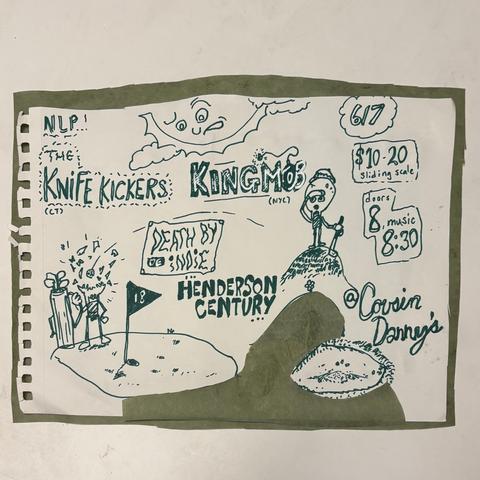 NLP!
THE
KNIFE KICKERS
(CT)
KINGMOB
(NYC)
6/7
$10-20
sliding scale
doors
8 music
8:30
DEATH BY
INDIE
HENDERSON
CENTURY
18
@ Cousin
Danny's